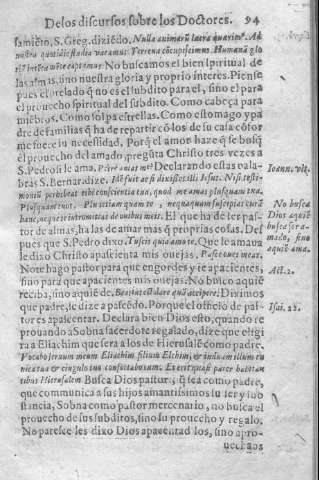 De los discursos sobre los Doctores. 94
samiẽto, S. Greg. diziẽdo, Nulla animarũ lucra quærim⁹. Ad
nostra quotidie studia vacamus. Terrena cõcupiscimus. Humanã glo
No buscamos el bien spiritual de
las almas, sino nuestra gloria y proprio interes. Piense
pues el prelado q̃ no es el subdito para el, sino el para
el prouecho spiritual del subdito. Como cabeça para
miẽbros. Como sol pa estrellas. Como estomago y pa
dre de familias q̃ ha de repartir cõ los de su casa cõfor
me fuere su necessidad. Porq̃ el amor haze q̃ se busq̃
el prouecho del amado, pregũta Christo tres vezes a
S. Pedro si le ama. Petre amas me? Declarando estas pala-
bras S. Bernardo dize. Nisi testi-
moniũ perhibeat tibi conscientia tua, quod me amas plusquam tua.
Plusquam tuos. Plus etiam quam te, nequaquam suscipias curã
hanc, neque te intromittas de ouibus meis. El que ha de ser pas-
tor de almas, ha las de amar mas q̃ proprias cosas. Des
pues que S. Pedro dixo. Tu scis quia amo te. Que le amaua
le dixo Christo apascienta mis ouejas. Pasce oues meas.
No te hago pastor para que engordes y te apacientes,
sino para que apacientes mis ouejas. No busco aquiẽ
reciba, sino aquiẽ de. Beatius est dare quã accipere. Diximos
que padre, le dize a pascẽdo. Porque el officio de pas-
tor es apascentar. Declara bien Dios esto, quando re
prouando a Sobna sacerdote regalado, dize que eligi
ra a Eliachim que sera a los de Hierusalẽ como padre.
Vocabo seruum meum Eliachim filium Elchiæ, & induam illum tu
nica tua & cingulo tuo confortabo eum. Et erit quasi pater habitan
tibus Hierusalem Busca Dios pastor, q̃ sea como padre,
que communica a sus hijos amantissimos su ser y sub
stancia, Sobna como pastor mercenario, no busca el
prouecho de sus subditos, sino su prouecho y regalo.
No paresce les dixo Dios apascentad los, sino apro-
uechaos
Ioann. vlt.
No busca
Dios aquiẽ
busca ser a-
mado, sino
aquiẽ ama.
Act. 2.
Isai. 22.